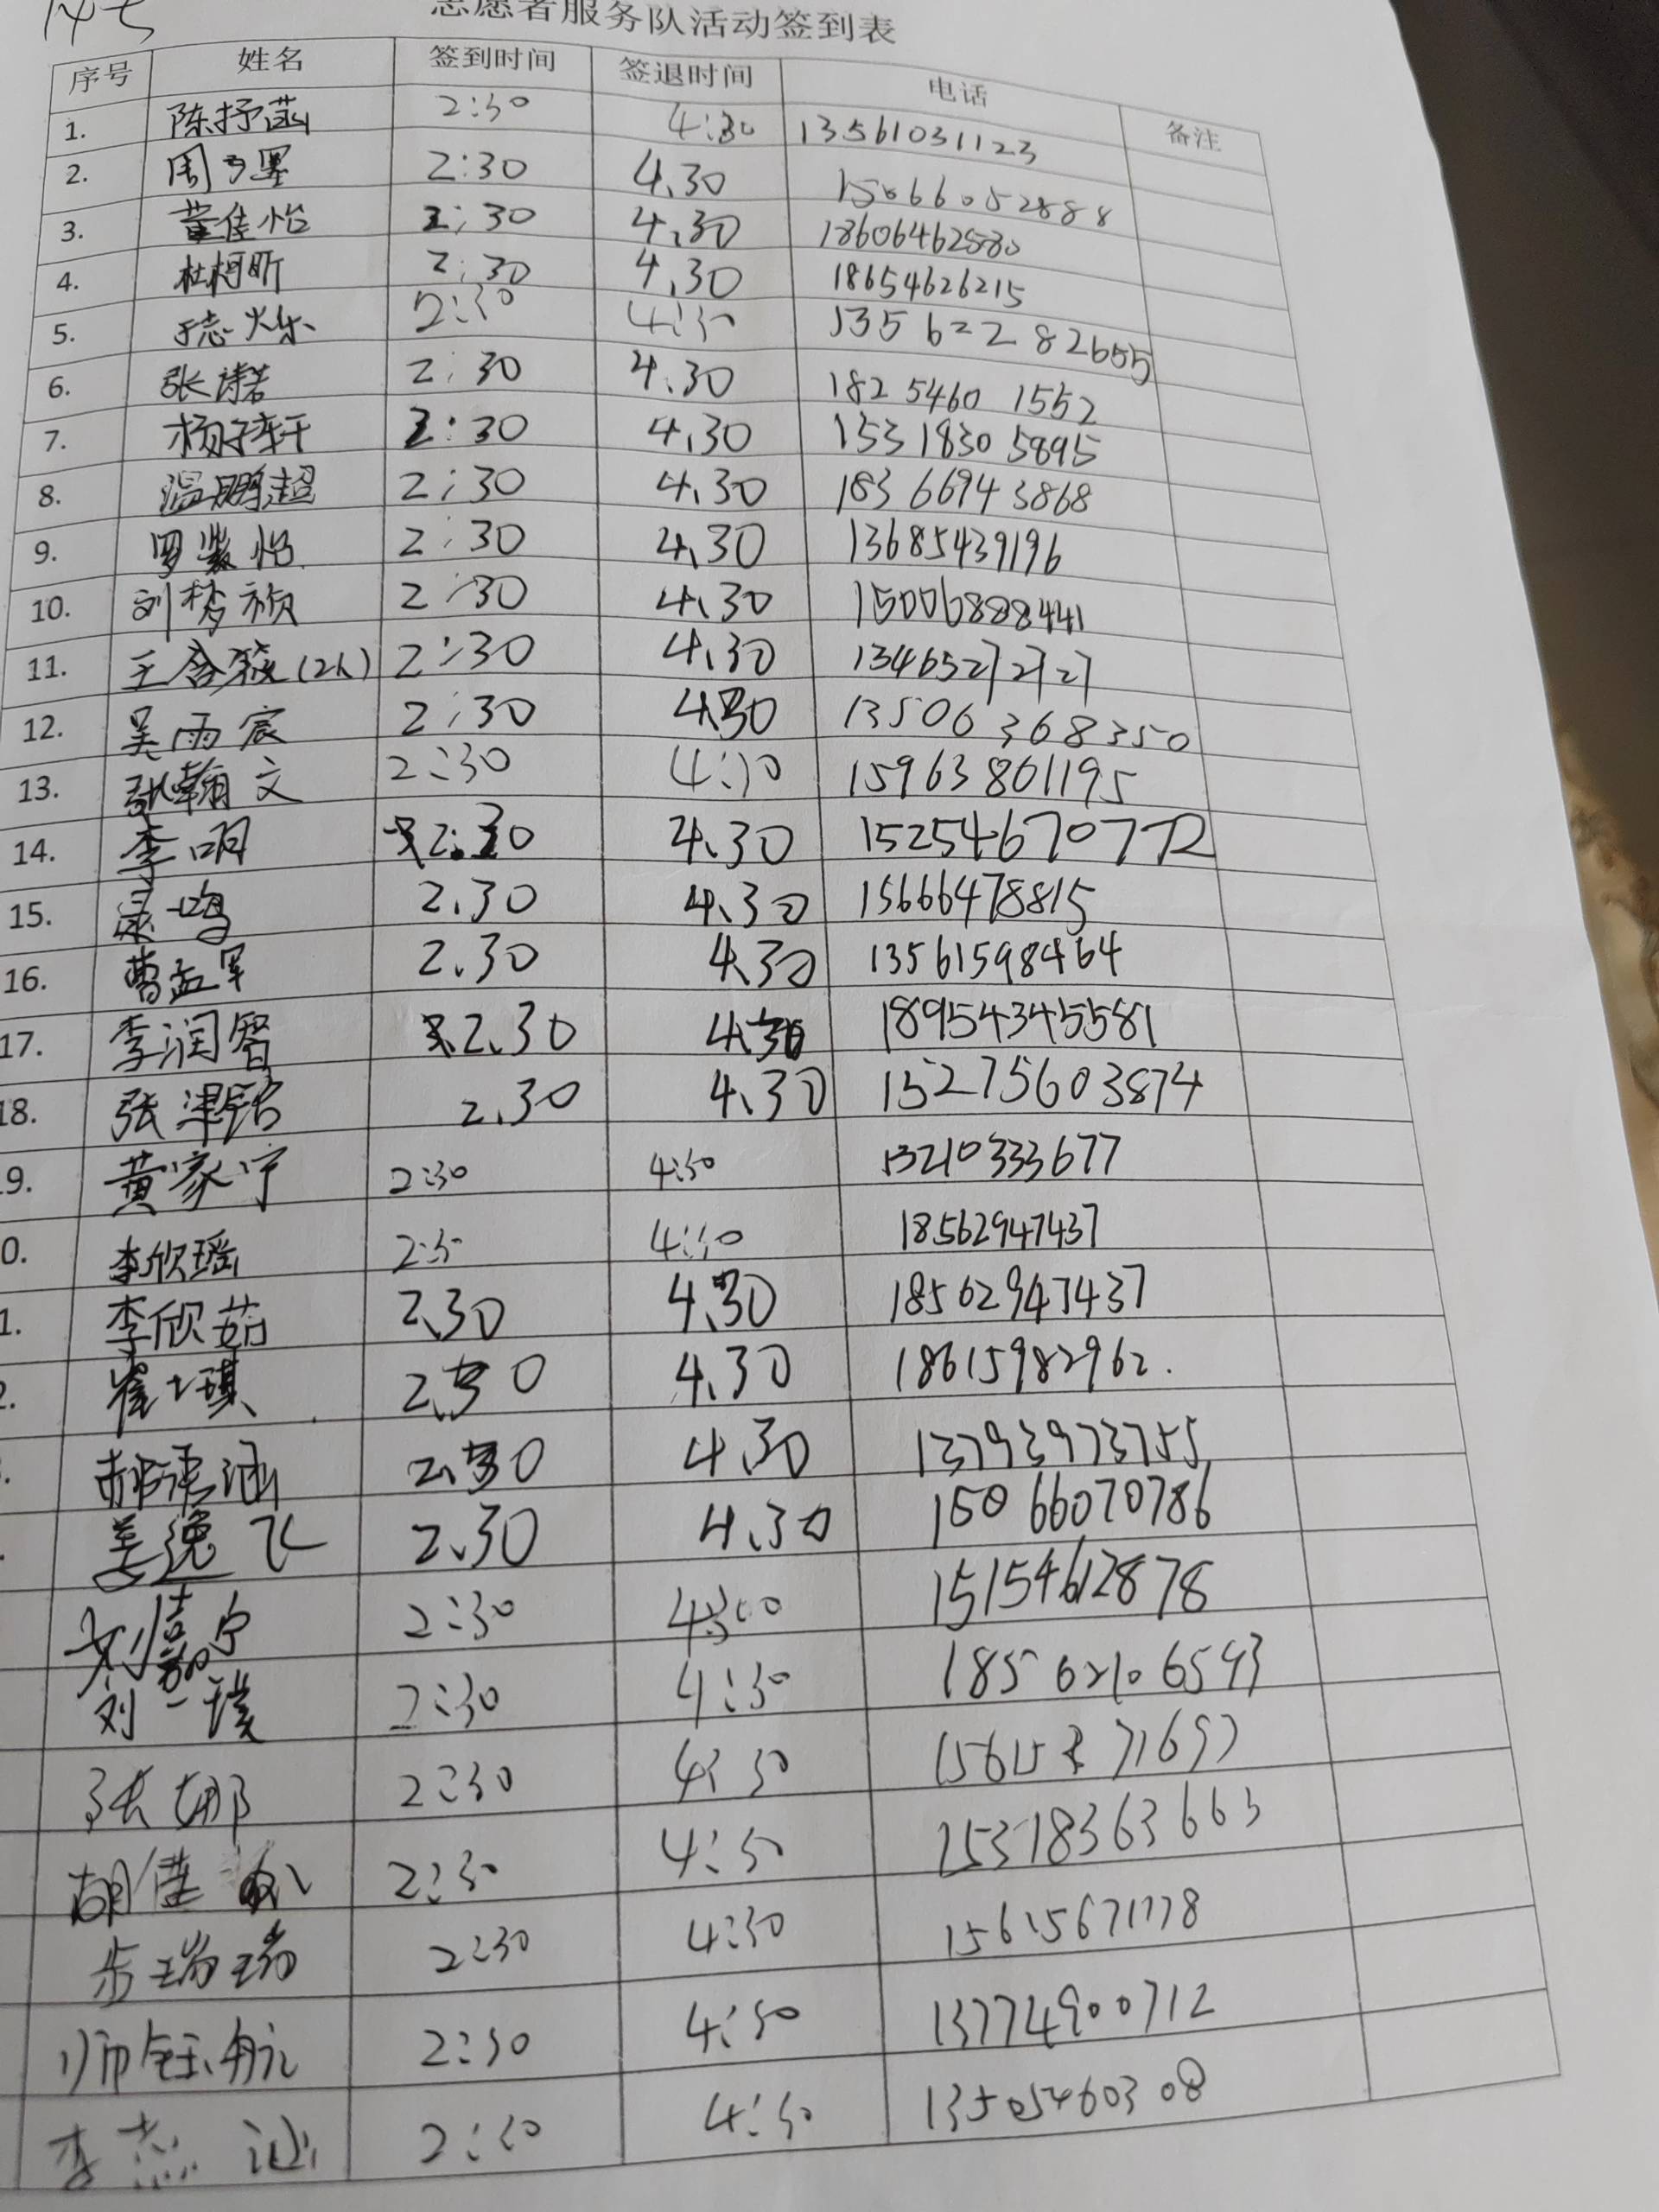 志愿者服务队活动签到表
序号 姓名 签到时间 签退时间 电话 备注
1. 陈抒菡 2:30 4:30 13561031123
2. 周子墨 2:30 4.30 15066052888
3. 董佳怡 2:30 4.30 18606462580
4. 杜柯昕 2:30 4.30 18654626215
5. 于志烁 2:30 4:30
6. 张诺 2:30 4.30 182 5460 1552
7. 杨子轩 2:30 4.30 153 1830 5895
8. 温鹏超 2:30 4.30 183 6694 3868
9. 罗紫怡 2:30 4.30 13685439196
10. 刘梦祯 2:30 4.30 15006888441
11. 王含筱(2人) 2:30 4.30 13465272727
12. 吴雨宸 2:30 4.30 13506368350
13. 张翰文 2:30 4:30 15963801195
14. 李明 2:30 4.30
15. 2.30 4.30 15666478815
16. 曹孟军 2.30 4.30 13561598464
17. 李润智 2.30 4.30 189543345581
18. 张津铭 2.30 4.30 15275603874
9. 黄家宁 2:30 4:30 13210333677
0. 李欣瑶 4:30 18562947437
1. 李欣茹 2.30 4.30 18562947437
2. 2.30 4.30 18615982962.
郝涵 2.30 4.30 13793973755
姜逸飞 2.30 4.30 15066070786
刘嘉宁 2:30 15154612878
刘一璞 2:30 4:30 185 6210 6593
张娜 2:30 4:30
胡佳 2:30 4:30 15318363663
步瑞瑞 2:30 4:30 15615671778
师钰航 2:30 4:30 13774900712
李志 2:30 4:30 13505460308